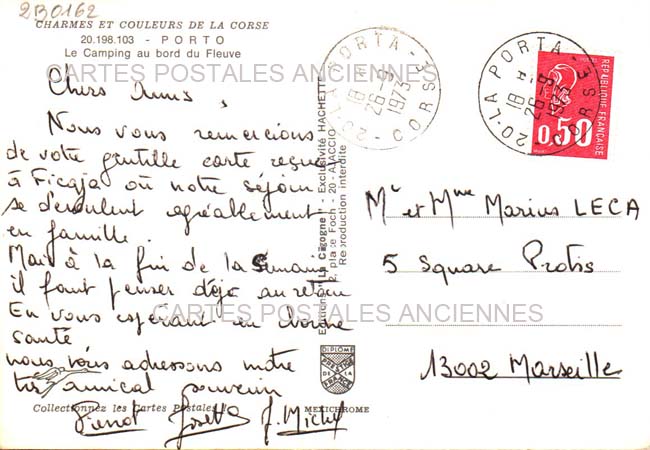 2B0162
CHARMES ET COULEURS DE LA CORSE
20.198.103 - PORTO
Le Camping au bord du Fleuve
CARTES POSTALES ANCIENNES
Chers Amis,
Nous vous remercions
de votre gentille carte reçue
à Ficaja où notre séjour
se déroulent agréablement
en famille.
Mais à la fin de la semaine
il faut penser déjà au retour
En vous espérant en bonne
santé
nous vous adressons notre
très amical souvenir
Pierrot Josette J. Michel
Collectionnez les Cartes Postales
MEXICHROME
Editions "La Cigogne" - Exclusivité HACHETTE
2, place Foch - 20 - AJACCIO
Reproduction interdite
DIPLOME
PRESTIGE
DE LA
FRANCE
20-LA PORTA - CORSE
18 H
26-9
1973
20-LA PORTA - CORSE
18 H
26-9
1973
REPUBLIQUE FRANÇAISE
0,50
Mr et Mme Marius LECA
5 Square Protis
CARTES POSTALES ANCIENNES
13002 Marseille